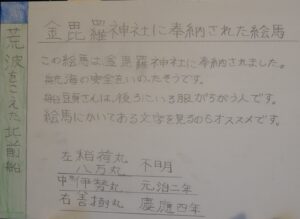 荒波をこえた北前船
金毘羅神社に奉納された絵馬
この絵馬は金毘羅神社に奉納されました。
海の安全をいのったそうです。
船頭さんは、後ろにいる服がちがう人です。
絵馬にかいてある文字を見るのもオススメです。
左 稲荷丸 不明
八万丸
中央 伊勢丸 元治二年
右 善樹丸 慶應四年